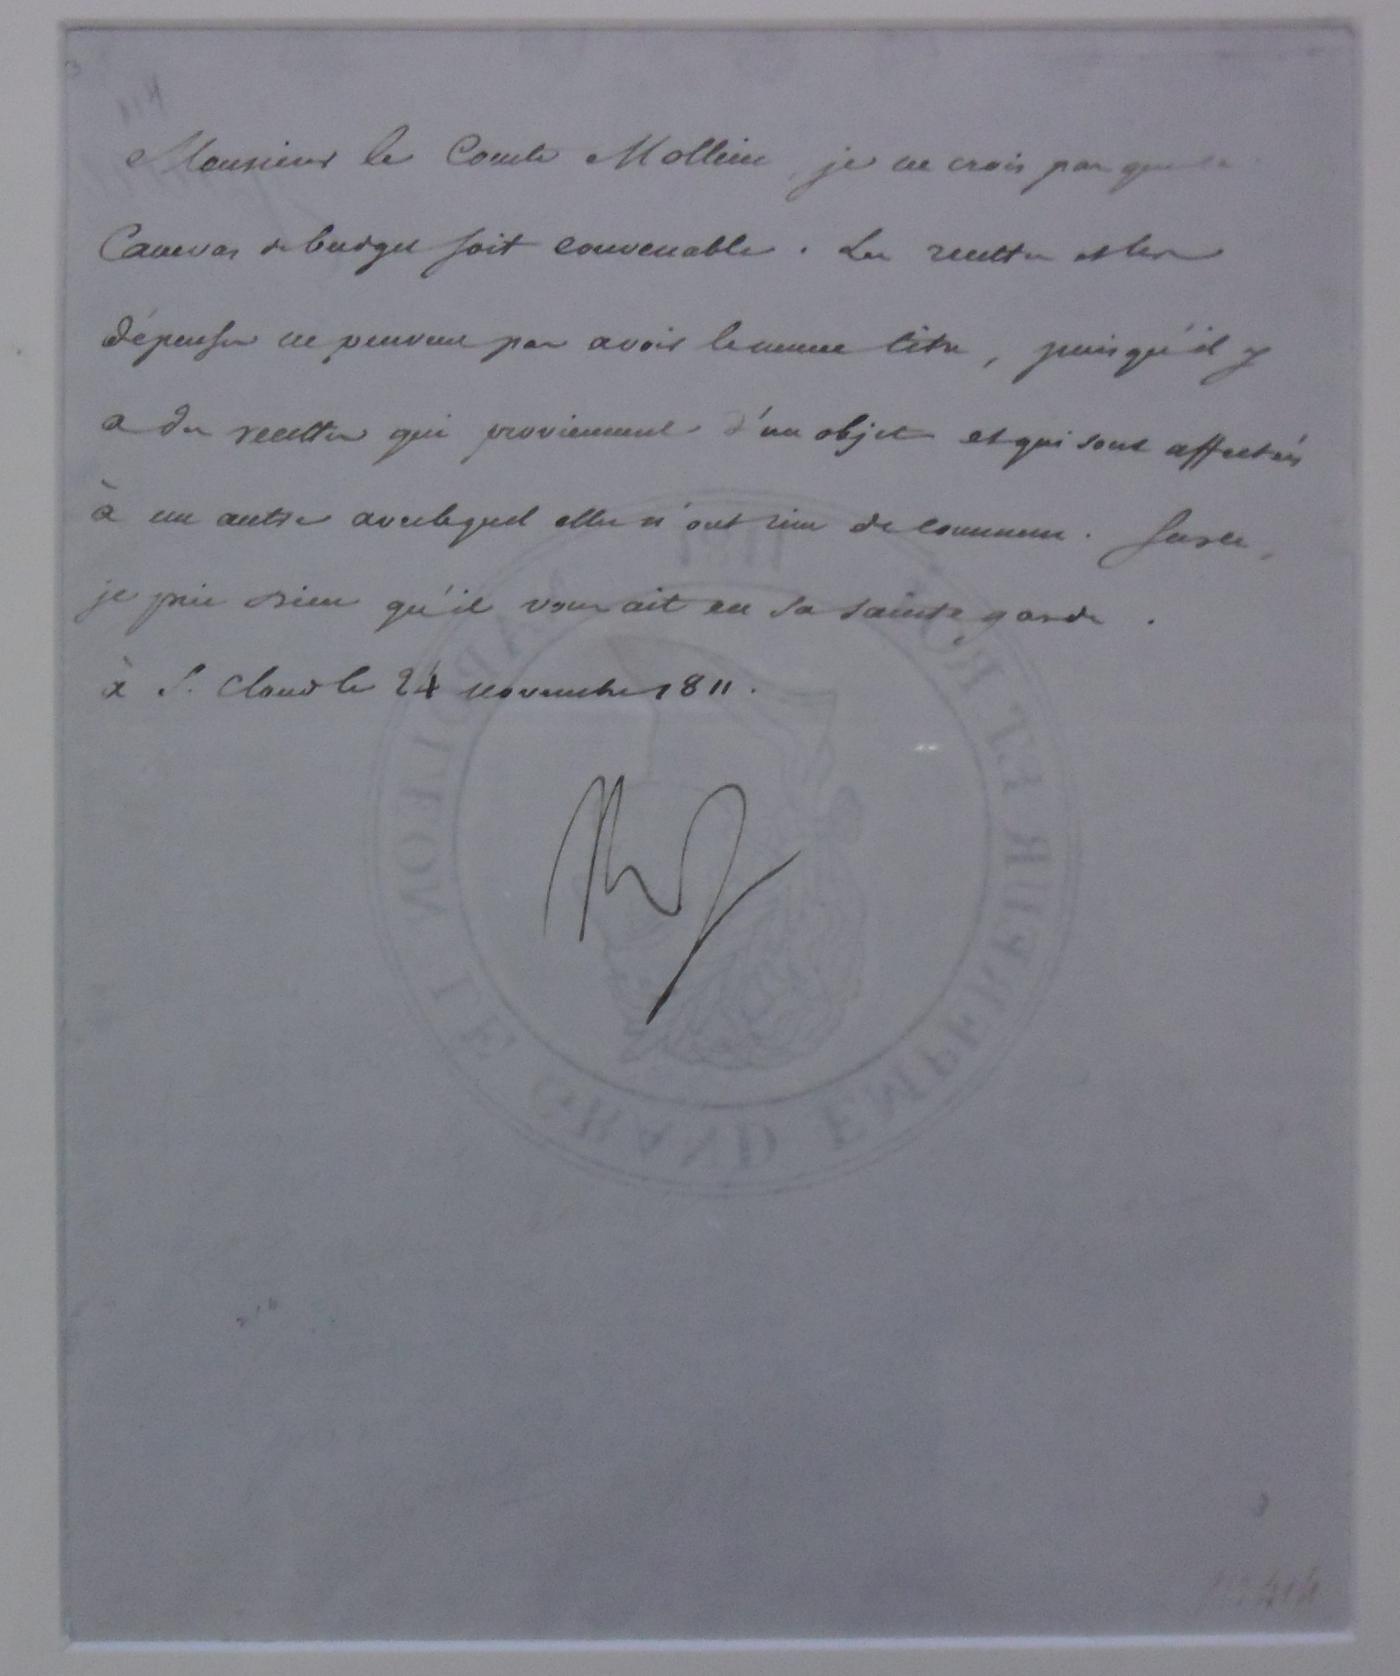 Monsieur le Comte Mollien, je ne crois pas que le
Canevas de budget soit convenable. Les recettes et les
dépenses ne peuvent pas avoir le même titre, puisqu'il y
a des recettes qui proviennent d'un objet et qui sont affectées
à un autre avec lequel elles n'ont rien de commun. Sur ce,
je prie Dieu qu'il vous ait en sa sainte garde.
à St. Cloud le 24 novembre 1811.
Np
NAPOLEON LE GRAND EMPEREUR ET ROI